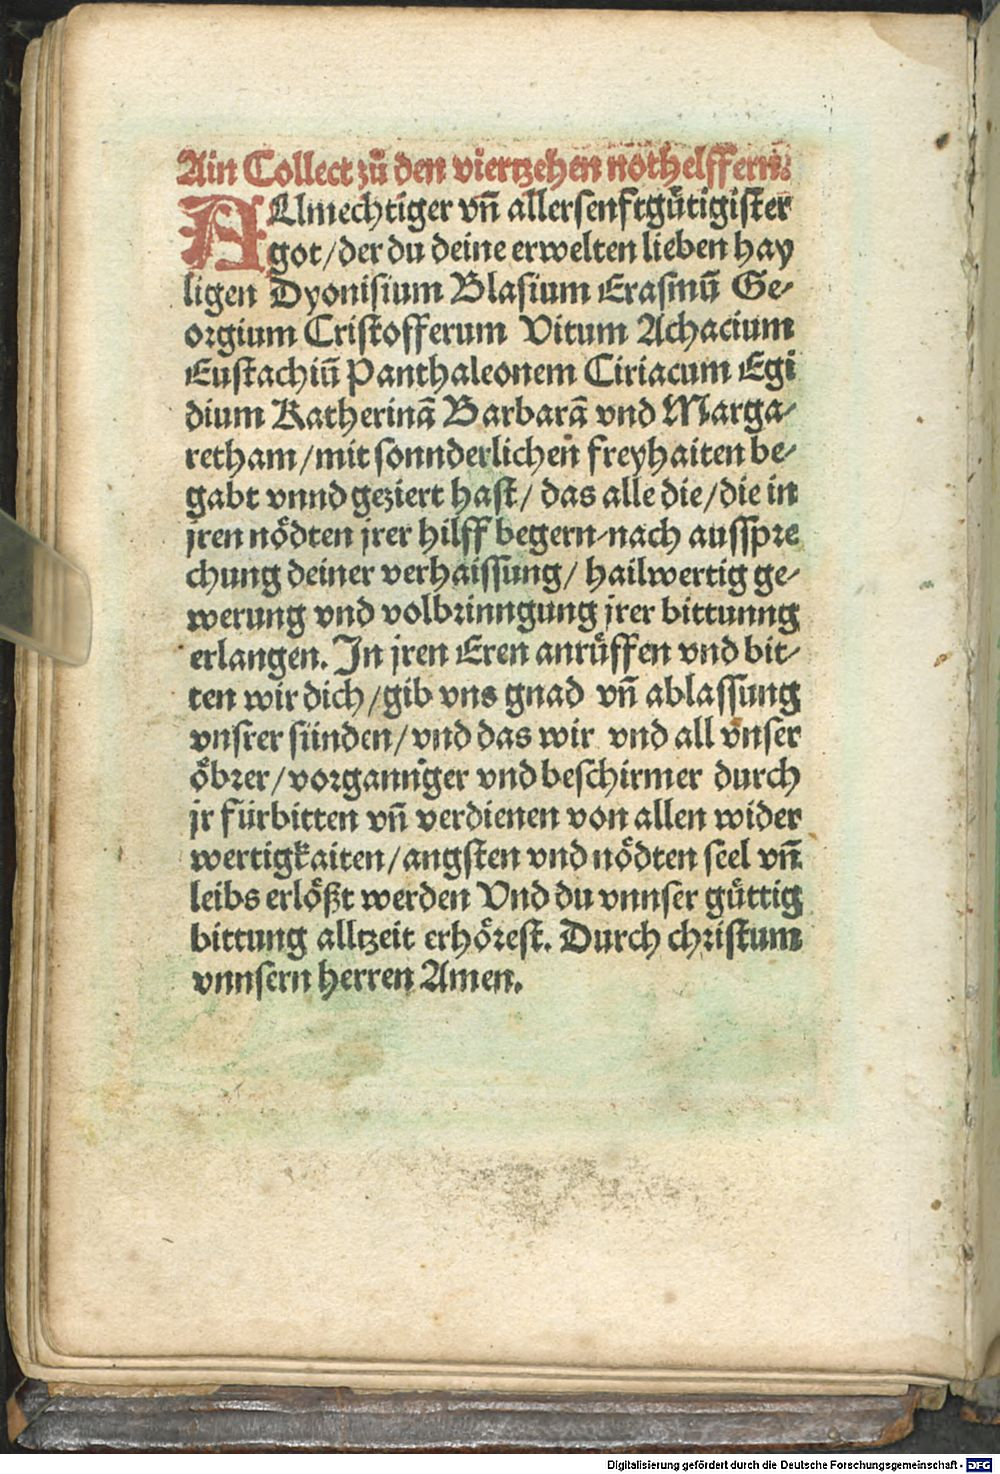 Ain Collect zů den viertzehen nothelffern:
ALlmechtiger vñ allersenfftgůtigister
got/der du deine erwelten lieben hay
ligen Dyonisium Blasium Erasmū Ge-
orgium Cristofferum Vitum Achacium
Eustachiū Panthaleonem Ciriacum Egi
dium Katherinā Barbarā vnd Marga-
retham/mit sonnderlichen freyhaiten be-
gabt vnnd geziert hast/ das alle die/die in
jren nödten jrer hilff begern-nach ausspre
chung deiner verhaissung/ hailwertig ge-
werung vnd volbrinngung jrer bittunng
erlangen. In jren Eren anrůffen vnd bit-
ten wir dich/gib vns gnad vñ ablassung
vnsrer sünden/vnd das wir vnd all vnser
öbrer/vorgannger vnd beschirmer durch
jr fürbitten vñ verdienen von allen wider
wertigkaiten/angsten vnd nödten seel vñ
leibs erlößt werden Vnd du vnnser gůttig
bittung alltzeit erhörest. Durch christum
vnnsern herren Amen.
Digitalisierung gefördert durch die Deutsche Forschungsgemeinschaft - DFG